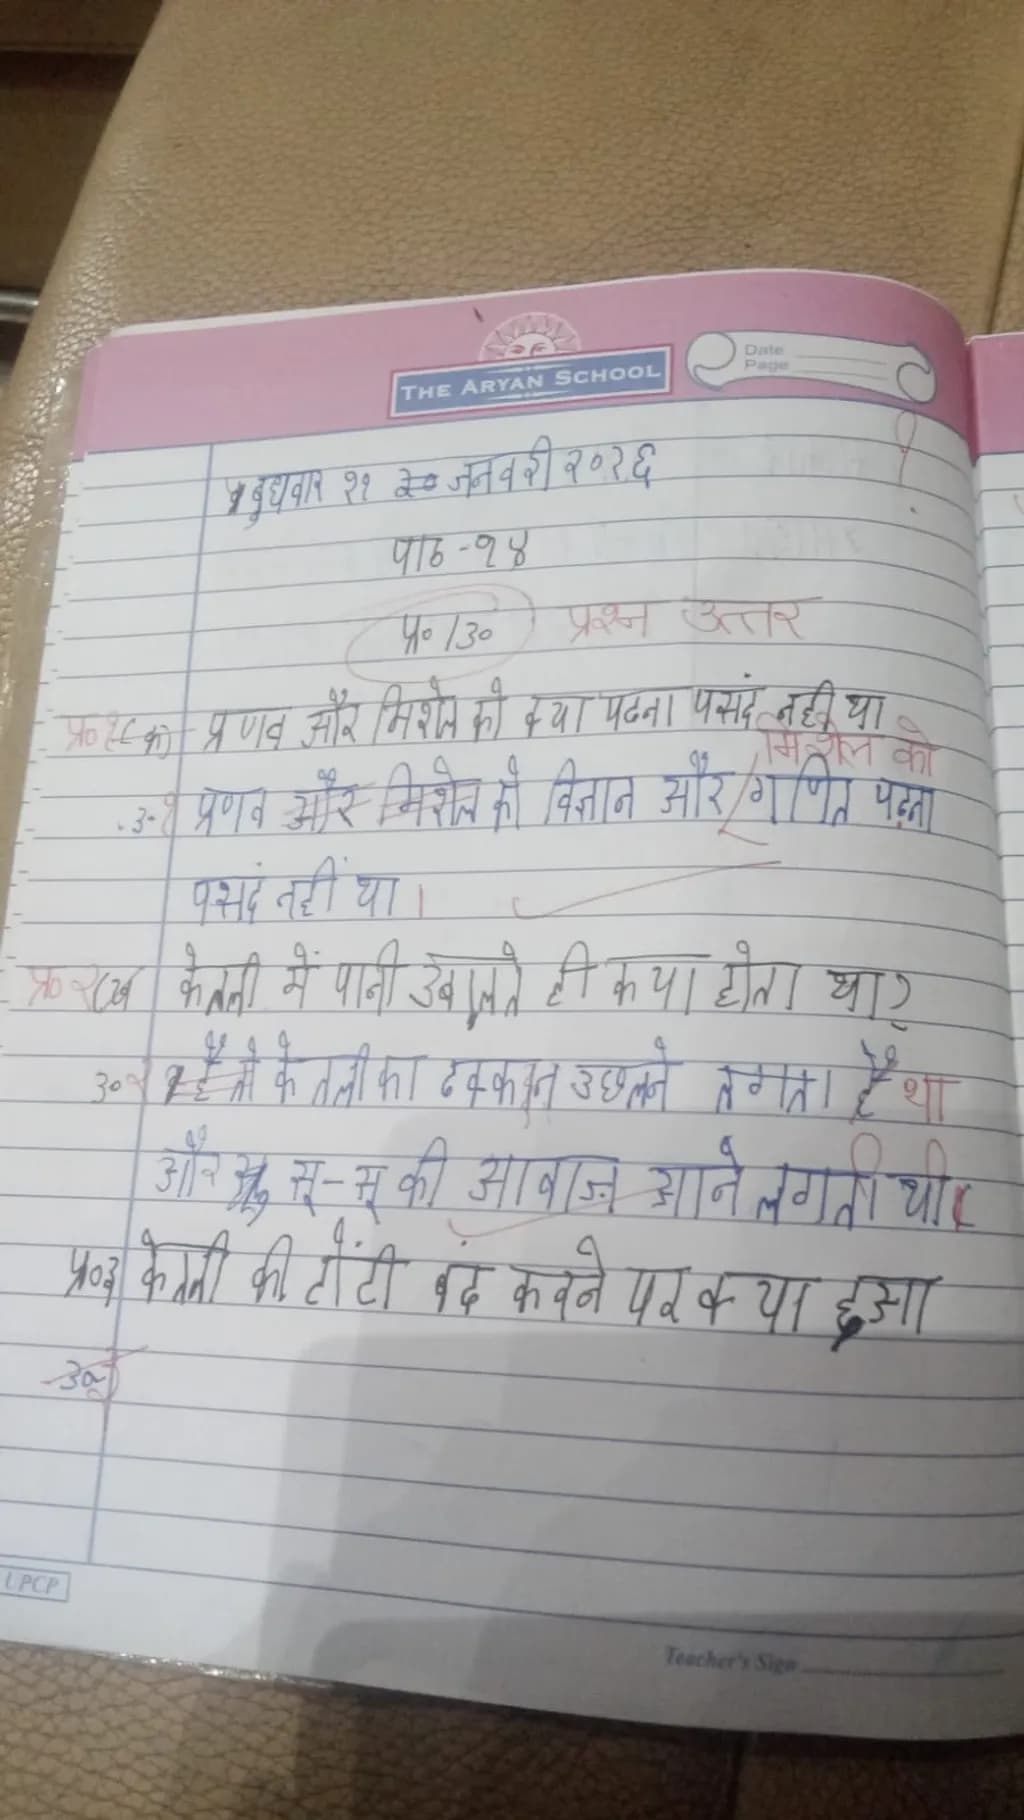 THE ARYAN SCHOOL
Date
Page
बुधवार २१ जनवरी २०२६
पाठ-१४
प्र० /उ० प्रश्न उत्तर
प्र० १(क) प्रणव और मिशेल को क्या पढना पसदं नही था
मिशेल को
उ-१ प्रणव और मिशेल को विज्ञान और गणित पढ़ना
पसदं नहीं था।
प्र० २(ख केतली में पानी उबालते ही कया होता था?
उ०२ केतली का ढक्कन उछलने लगता है था
और सू-सू की आवाज़ आने लगती थी।
प्र०३ केतली की टोंटी बंद करने पर क्या हुआ
उ०३
LPCP
Teacher's Sign